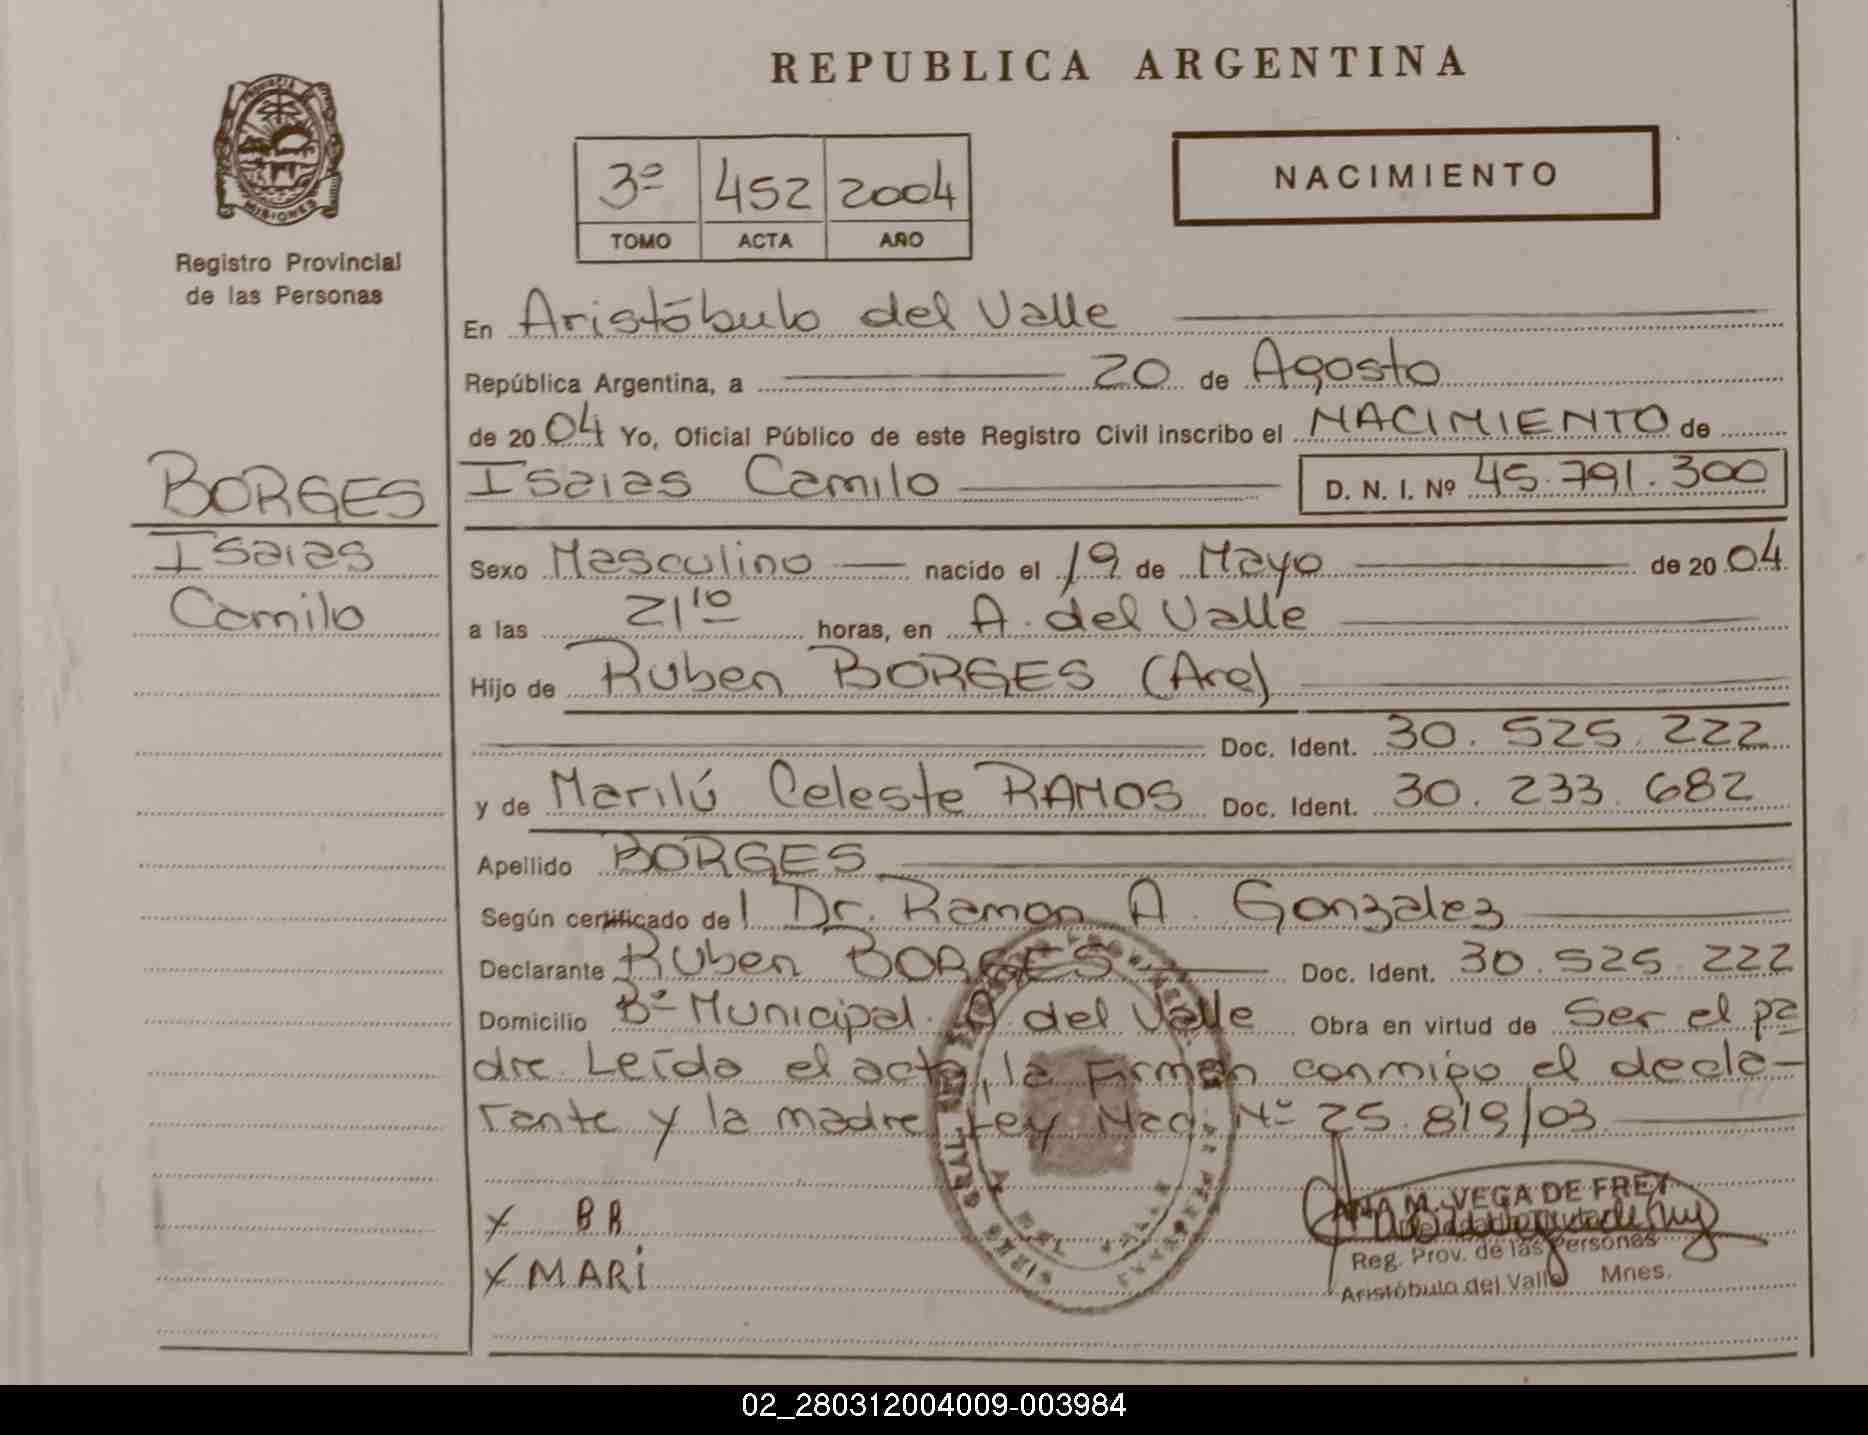 REPUBLICA ARGENTINA
PROVINCIA
MISIONES
Registro Provincial
de las Personas
3º 452 2004
TOMO ACTA AÑO
NACIMIENTO
En Aristóbulo del Valle
República Argentina, a 20 de Agosto
de 20 04 Yo, Oficial Público de este Registro Civil inscribo el NACIMIENTO de
BORGES
Isaias
Camilo
Isaias Camilo D. N. I. Nº 45.791.300
Sexo Masculino nacido el 19 de Mayo de 20 04
a las 21 10 horas, en A. del Valle
Hijo de Ruben BORGES (Arg)
Doc. Ident. 30.525.222
y de Marilú Celeste RAMOS Doc. Ident. 30.233.682
Apellido BORGES
Según certificado de l Dr. Ramon A. Gonzalez
Declarante Ruben BORGES Doc. Ident. 30.525.222
Domicilio Bº Municipal. A. del Valle Obra en virtud de Ser el pa
dre. Leída el acta, la firman conmigo el decla-
rante y la madre. Ley Nac. Nº 25.819/03
X BR
X MARi
ANA M. VEGA DE FREY
Reg. Prov. de las Personas
Aristóbulo del Valle Mnes.
02_280312004009-003984